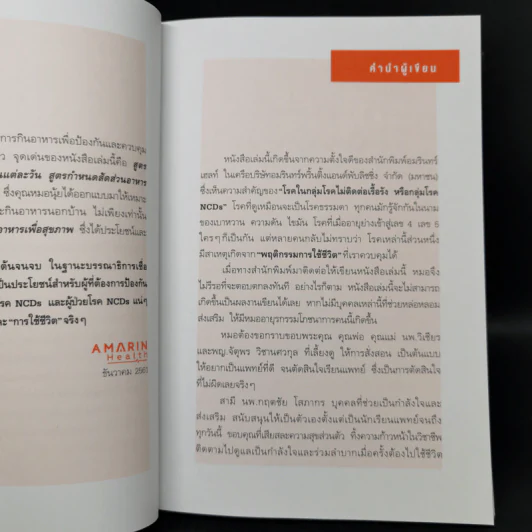 การกินอาหารเพื่อป้องกันและควบคุม
ว จุดเด่นของหนังสือเล่มนี้คือ สูตร
นแต่ละวัน สูตรกำหนดสัดส่วนอาหาร
ซึ่งคุณหมอนุ้ยได้ออกแบบมาให้เหมาะ
ะกินอาหารนอกบ้าน ไม่เพียงเท่านั้น
าหารเพื่อสุขภาพ ซึ่งได้ประโยชน์และ
ต้นจนจบ ในฐานะบรรณาธิการเชื่อ
เป็นประโยชน์สำหรับผู้ที่ต้องการป้องกัน
รค NCDs และผู้ป่วยโรค NCDs แน่ๆ
ละ “การใช้ชีวิต” จริงๆ
AMARIN
Health
ธันวาคม
คำนำผู้เขียน
หนังสือเล่มนี้เกิดขึ้นจากความตั้งใจดีของสำนักพิมพ์อมรินทร์
เฮลท์ ในเครือบริษัทอมรินทร์พริ้นติ้งแอนด์พับลิชชิ่ง จำกัด (มหาชน)
ซึ่งเห็นความสำคัญของ “โรคในกลุ่มโรคไม่ติดต่อเรื้อรัง หรือกลุ่มโรค
NCDs” โรคที่ดูเหมือนจะเป็นโรคธรรมดา ทุกคนมักรู้จักกันในนาม
ของเบาหวาน ความดัน ไขมัน โรคที่เมื่ออายุย่างเข้าสู่เลข 4 เลข 5
ใครๆ ก็เป็นกัน แต่หลายคนกลับไม่ทราบว่า โรคเหล่านี้ส่วนหนึ่ง
มีสาเหตุเกิดจาก “พฤติกรรมการใช้ชีวิต” ที่เราควบคุมได้
เมื่อทางสำนักพิมพ์มาติดต่อให้เขียนหนังสือเล่มนี้ หมอจึง
ไม่รีรอที่จะตอบตกลงทันที อย่างไรก็ตาม หนังสือเล่มนี้จะไม่สามารถ
เกิดขึ้นเป็นผลงานเขียนได้เลย หากไม่มีบุคคลเหล่านี้ที่ช่วยหล่อหลอม
ส่งเสริม ให้มีหมออายุรกรรมโภชนาการคนนี้เกิดขึ้น
หมอต้องขอกราบขอบพระคุณ คุณพ่อ คุณแม่ นพ.วิเชียร
และพญ.จัตุพร วิชานศวกุล ที่เลี้ยงดู ให้การสั่งสอน เป็นต้นแบบ
ให้อยากเป็นแพทย์ที่ดี จนตัดสินใจเรียนแพทย์ ซึ่งเป็นการตัดสินใจ
ที่ไม่ผิดเลยจริงๆ
สามี นพ.กฤตชัย โสภากร บุคคลที่ช่วยเป็นกำลังใจและ
ส่งเสริม สนับสนุนให้เป็นตัวเองตั้งแต่เป็นนักเรียนแพทย์จนถึง
ทุกวันนี้ ขอบคุณที่เสียสละความสุขส่วนตัว ทิ้งความก้าวหน้าในวิชาชีพ
ติดตามไปดูแลเป็นกำลังใจและร่วมลำบากเมื่อครั้งต้องไปใช้ชีวิต